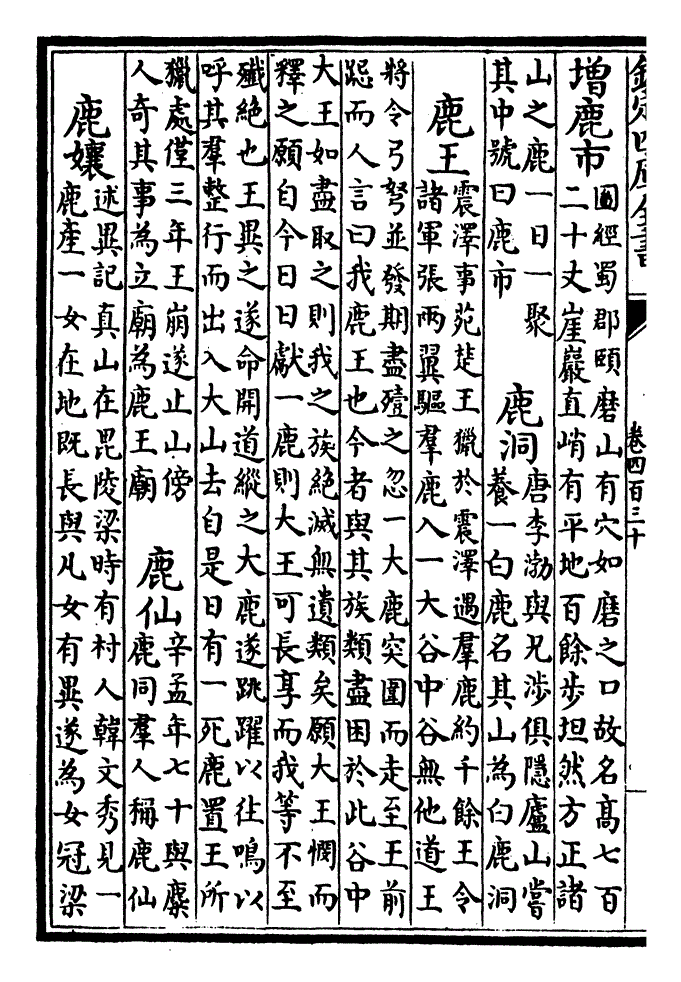 欽定四庫全書
卷四百三十
增鹿市
圖經蜀郡頤磨山有穴如磨之口故名高七百
二十丈崖巖直峭有平地百餘步坦然方正諸
山之鹿一日一聚
其中號曰鹿市
鹿洞
唐李渤與兄涉俱隱廬山嘗
養一白鹿名其山為白鹿洞
鹿王
震澤事苑楚王獵於震澤遇羣鹿約千餘王令
諸軍張兩翼驅羣鹿入一大谷中谷無他道王
將令弓弩並發期盡殪之忽一大鹿突圍而走至王前
跽而人言曰我鹿王也今者與其族類盡困於此谷中
大王如盡取之則我之族絕滅無遺類矣願大王憫而
釋之願自今日日獻一鹿則大王可長享而我等不至
殲絕也王異之遂命開道縱之大鹿遂跳躍以往鳴以
呼其羣整行而出入大山去自是日有一死鹿置王所
獵處僅三年王崩遂止山傍
人奇其事為立廟為鹿王廟
鹿仙
辛孟年七十與麋
鹿同羣人稱鹿仙
鹿孃
述異記真山在毘陵梁時有村人韓文秀見一
鹿產一女在地既長與凡女有異遂為女冠梁